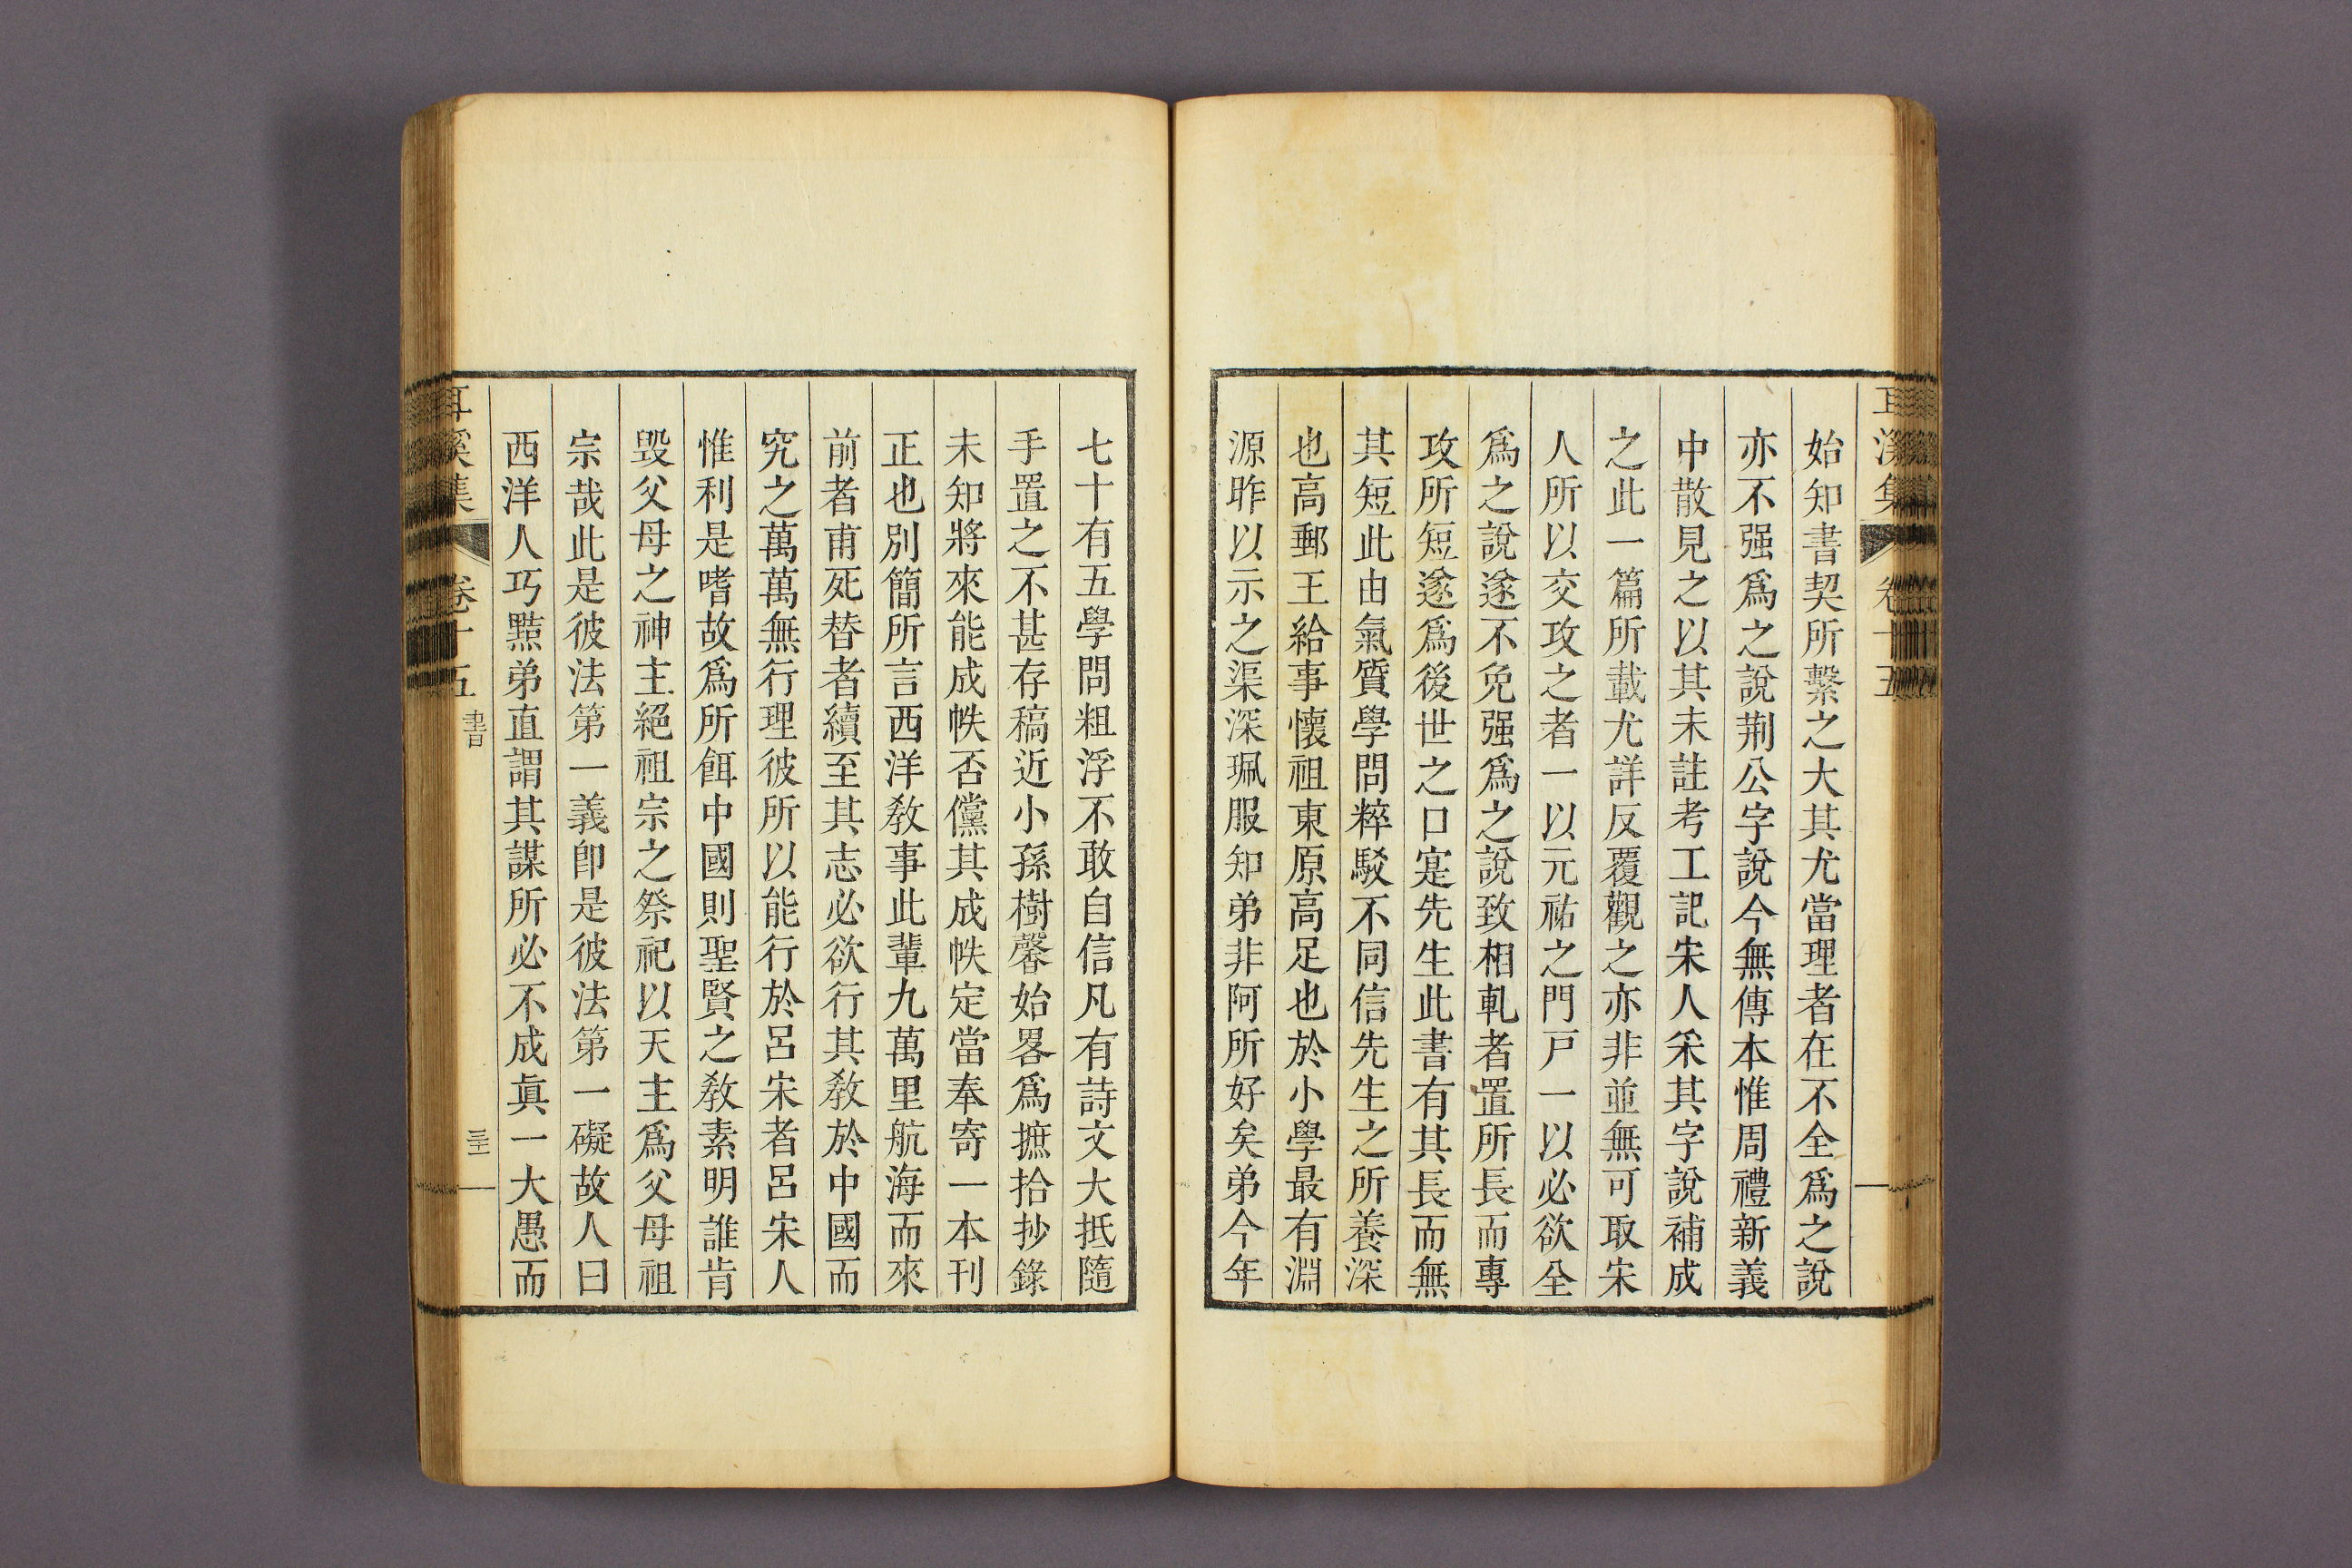 耳溪集 卷十五
始知書契所繫之大其尤當理者在不全爲之說
亦不强爲之說荆公字說今無傳本惟周禮新義
中散見之以其未註考工記宋人采其字說補成
之此一篇所載尤詳反覆觀之亦非並無可取宋
人所以交攻之者一以元祐之門戸一以必欲全
爲之說遂不免强爲之說致相軋者置所長而專
攻所短遂爲後世之口寔先生此書有其長而無
其短此由氣質學問粹駁不同信先生之所養深
也高郵王給事懷祖東原高足也於小學最有淵
源昨以示之渠深珮服知弟非阿所好矣弟今年
七十有五學問粗浮不敢自信凡有詩文大抵隨
手置之不甚存稿近小孫樹馨始畧爲摭拾抄錄
未知將來能成帙否儻其成帙定當奉寄一本刊
正也別簡所言西洋敎事此輩九萬里航海而來
前者甫死替者續至其志必欲行其敎於中國而
究之萬萬無行理彼所以能行於呂宋者呂宋人
惟利是嗜故爲所餌中國則聖賢之敎素明誰肯
毁父母之神主絕祖宗之祭祀以天主爲父母祖
宗哉此是彼法第一義卽是彼法第一礙故人曰
西洋人巧黠弟直謂其謀所必不成眞一大愚而
耳溪集 卷十五 書